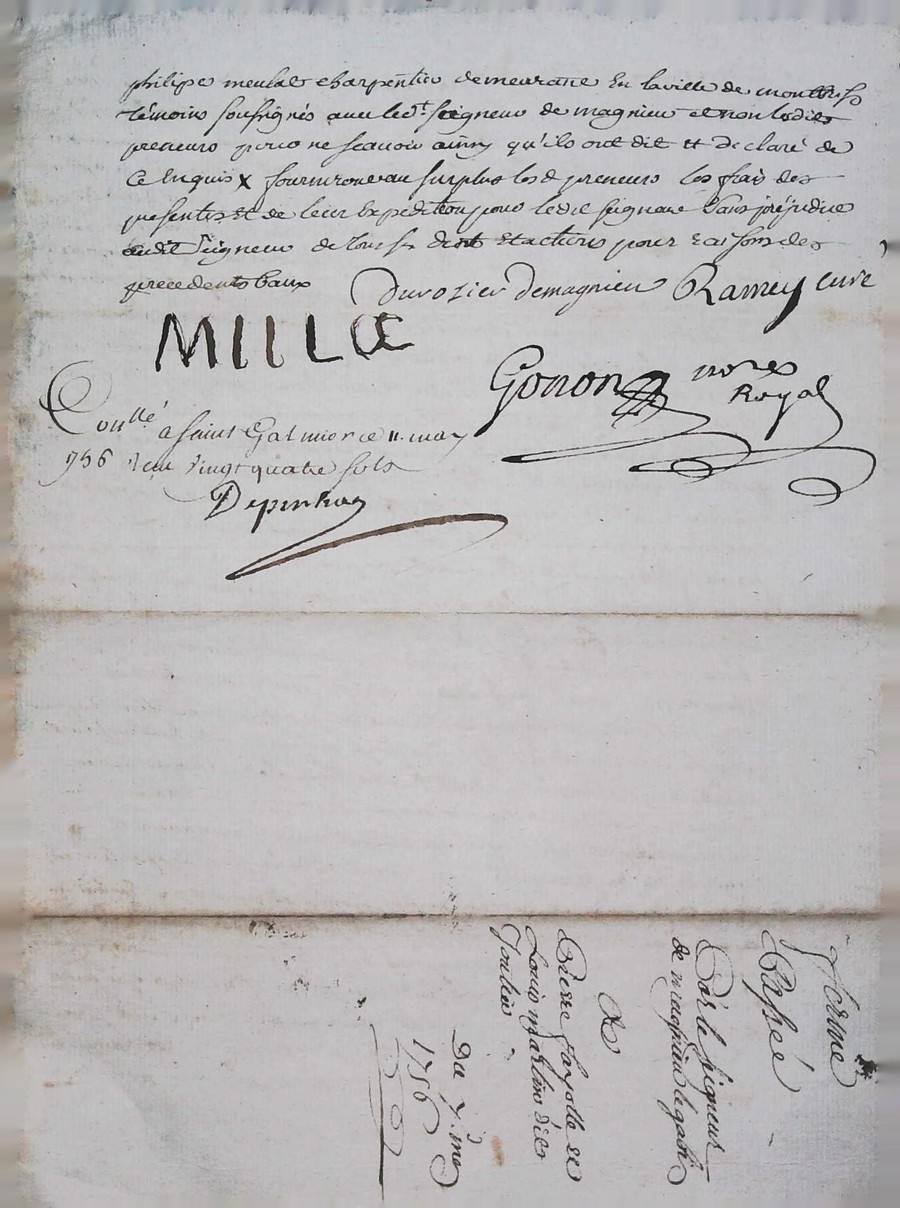 philipe meulat charpentier demeurant En la ville de
témoins soussignés avec led.t seigneur de magnieu et non lesdits
preneurs pour ne scavoir ainsy qu'ils ont dit et declaré de
ce Enquis X fourniront au surplus lesd preneurs les frais des
presentes et de leur Expedition pour ledit seigneur Sans préjudice
audit Seigneur de tous ses et actions pour raisons des
precedents baux
Durozier Demagnieu Ramey curé
MIILOE
Gonon nores
Royal
Conllé a saint Galmier ce 11. may
1756 Recu vingt quatre sols
Depinhac
ferme
Passé
Par le seigneur
de magnieu le gabi
A
Pierre fayolle et
Louis martin dit
Toulin
Du 7. me
1756